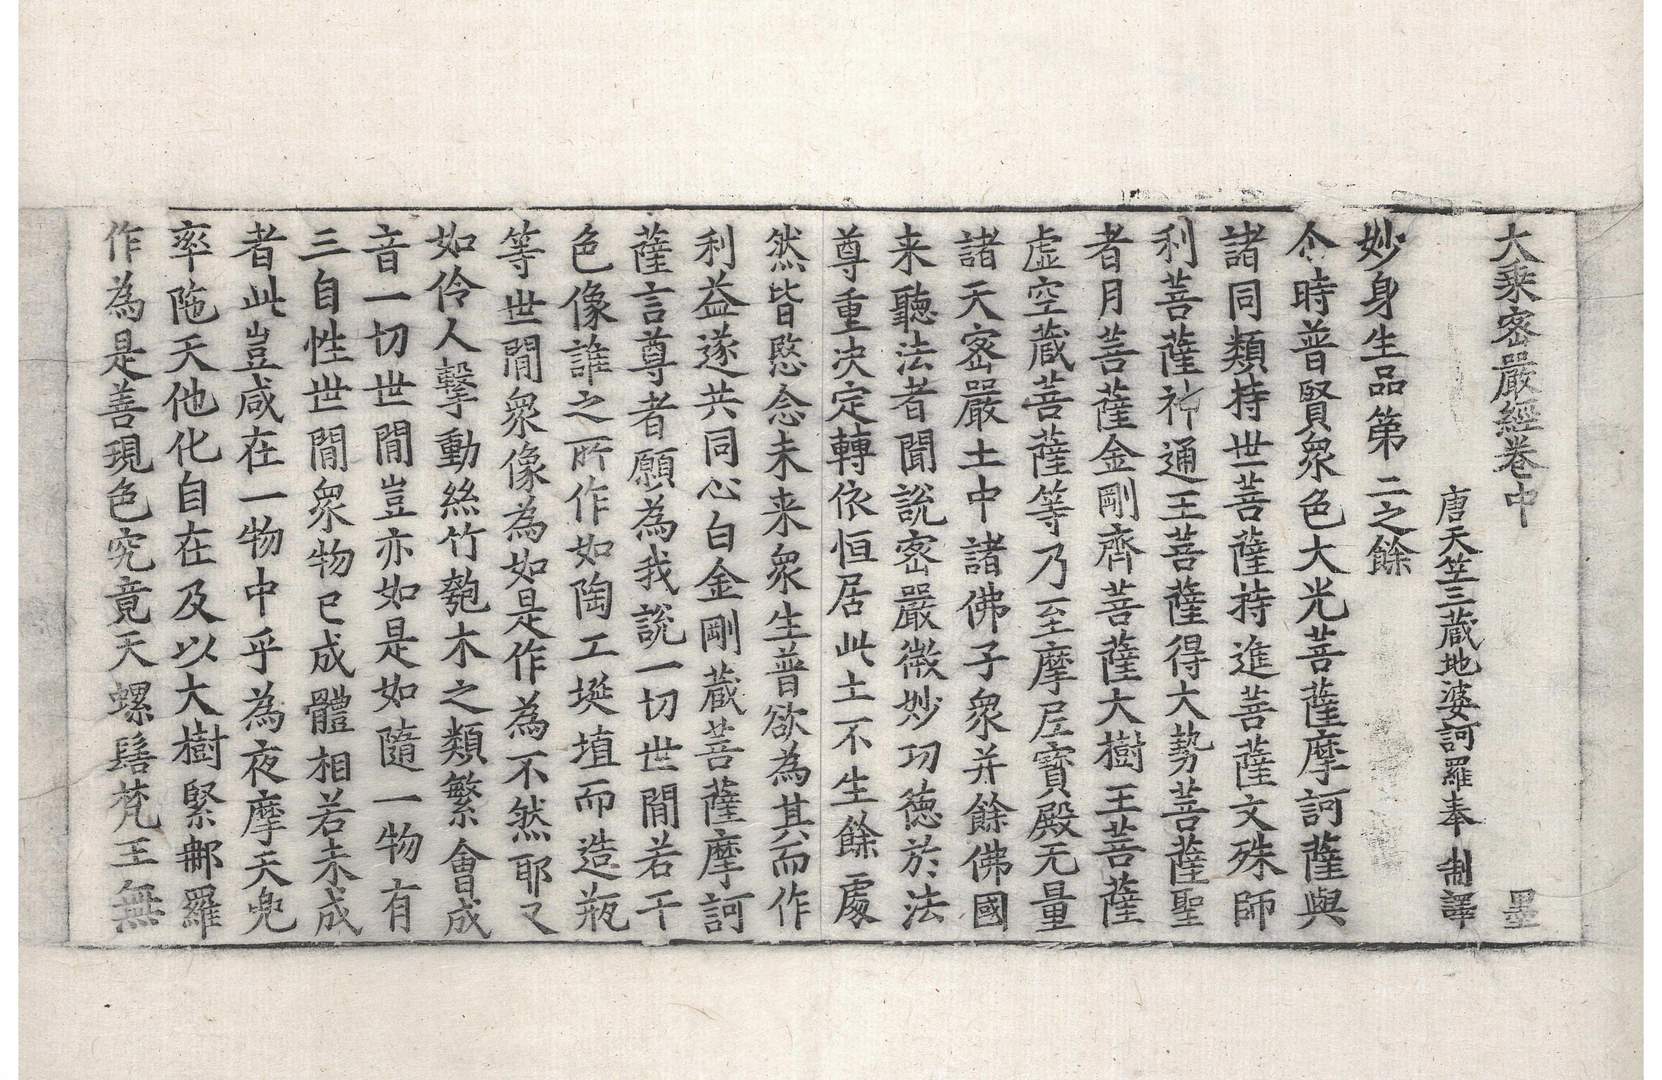 大乘密嚴經卷中 墨
唐天竺三藏地婆訶羅奉 制譯
妙身生品第二之餘
尒時普賢衆色大光菩薩摩訶薩與
諸同類持世菩薩持進菩薩文殊師
利菩薩神通王菩薩得大勢菩薩聖
者月菩薩金剛齊菩薩大樹王菩薩
虛空藏菩薩等乃至摩尼寶殿无量
諸天密嚴土中諸佛子衆并餘佛國
来聽法者聞說密嚴微妙功德於法
尊重决定轉依恒居此土不生餘處
然皆愍念未来衆生普欲為其而作
利益遂共同心白金剛藏菩薩摩訶
薩言尊者願為我說一切世間若干
色像誰之所作如陶工埏埴而造瓶
等世間衆像為如是作為不然耶又
如伶人擊動絲竹匏木之類繁會成
音一切世間豈亦如是如隨一物有
三自性世間衆物已成體相若未成
者此豈咸在一物中乎為夜摩天兜
率陁天他化自在及以大樹緊那羅
作為是善現色究竟天螺髻梵王無